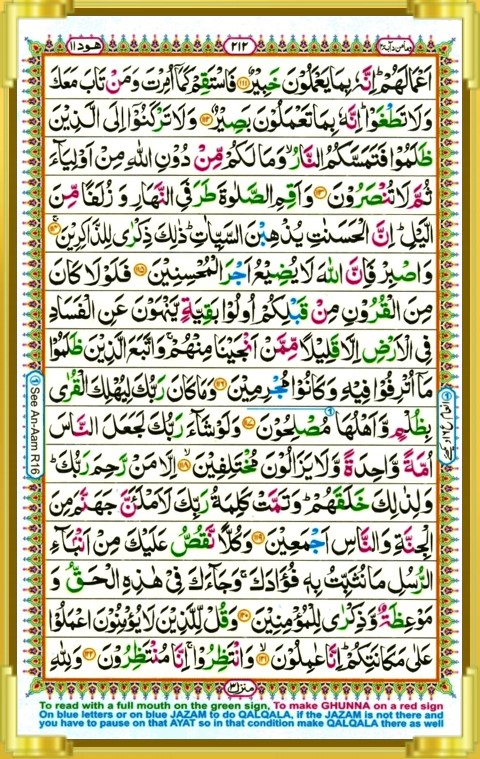 ومامن دآبة ١٢
٢١٢
هود ١١
اَعْمَالَهُمْ ؕ اِنَّهٗ بِمَا يَعْمَلُوْنَ خَبِيْرٌ ﴿۱۱۱﴾ فَاسْتَقِمْ كَمَاۤ اُمِرْتَ وَمَنْ تَابَ مَعَكَ
وَلَا تَطْغَوْا ؕ اِنَّهٗ بِمَا تَعْمَلُوْنَ بَصِيْرٌ ﴿۱۱۲﴾ وَلَا تَرْكَنُوْۤا اِلَى الَّذِيْنَ
ظَلَمُوْا فَتَمَسَّكُمُ النَّارُ ۙ وَمَا لَكُمْ مِّنْ دُوْنِ اللّٰهِ مِنْ اَوْلِيَآءَ
ثُمَّ لَا تُنْصَرُوْنَ ﴿۱۱۳﴾ وَاَقِمِ الصَّلٰوةَ طَرَفَىِ النَّهَارِ وَ زُلَفًا مِّنَ
الَّيْلِ ؕ اِنَّ الْحَسَنٰتِ يُذْهِبْنَ السَّيِّاٰتِ ؕ ذٰلِكَ ذِكْرٰى لِلذّٰكِرِيْنَ ﴿۱۱۴﴾
وَاصْبِرْ فَاِنَّ اللّٰهَ لَا يُضِيْعُ اَجْرَ الْمُحْسِنِيْنَ ﴿۱۱۵﴾ فَلَوْلَا كَانَ
مِنَ الْقُرُوْنِ مِنْ قَبْلِكُمْ اُولُوْا بَقِيَّةٍ يَّنْهَوْنَ عَنِ الْفَسَادِ
فِى الْاَرْضِ اِلَّا قَلِيْلًا مِّمَّنْ اَنْجَيْنَا مِنْهُمْ ۚ وَاتَّبَعَ الَّذِيْنَ ظَلَمُوْا
مَاۤ اُتْرِفُوْا فِيْهِ وَكَانُوْا مُجْرِمِيْنَ ﴿۱۱۶﴾ وَمَا كَانَ رَبُّكَ لِيُهْلِكَ الْقُرٰى
بِظُلْمٍ وَّاَهْلُهَا مُصْلِحُوْنَ ﴿۱۱۷﴾ وَلَوْ شَآءَ رَبُّكَ لَجَعَلَ النَّاسَ
اُمَّةً وَّاحِدَةً وَّلَا يَزَالُوْنَ مُخْتَلِفِيْنَ ﴿۱۱۸﴾ اِلَّا مَنْ رَّحِمَ رَبُّكَ ؕ
وَلِذٰلِكَ خَلَقَهُمْ ؕ وَتَمَّتْ كَلِمَةُ رَبِّكَ لَاَمْلَئَنَّ جَهَنَّمَ مِنَ
الْجِنَّةِ وَالنَّاسِ اَجْمَعِيْنَ ﴿۱۱۹﴾ وَكُلًّا نَّقُصُّ عَلَيْكَ مِنْ اَنْۢبَآءِ
الرُّسُلِ مَا نُثَبِّتُ بِهٖ فُؤَادَكَ ۚ وَجَآءَكَ فِىْ هٰذِهِ الْحَقُّ وَ
مَوْعِظَةٌ وَّذِكْرٰى لِلْمُؤْمِنِيْنَ ﴿۱۲۰﴾ وَقُلْ لِّلَّذِيْنَ لَا يُؤْمِنُوْنَ اعْمَلُوْا
عَلٰى مَكَانَتِكُمْ ؕ اِنَّا عٰمِلُوْنَ ﴿۱۲۱﴾ وَانْتَظِرُوْا ۚ اِنَّا مُنْتَظِرُوْنَ ﴿۱۲۲﴾ وَلِلّٰهِ
① See An-Aam R16
منزل ٣
To read with a full mouth on the green sign, To make GHUNNA on a red sign
On blue letters or on blue JAZAM to do QALQALA, if the JAZAM is not there and
you have to pause on that AYAT so in that condition make QALQALA there as well